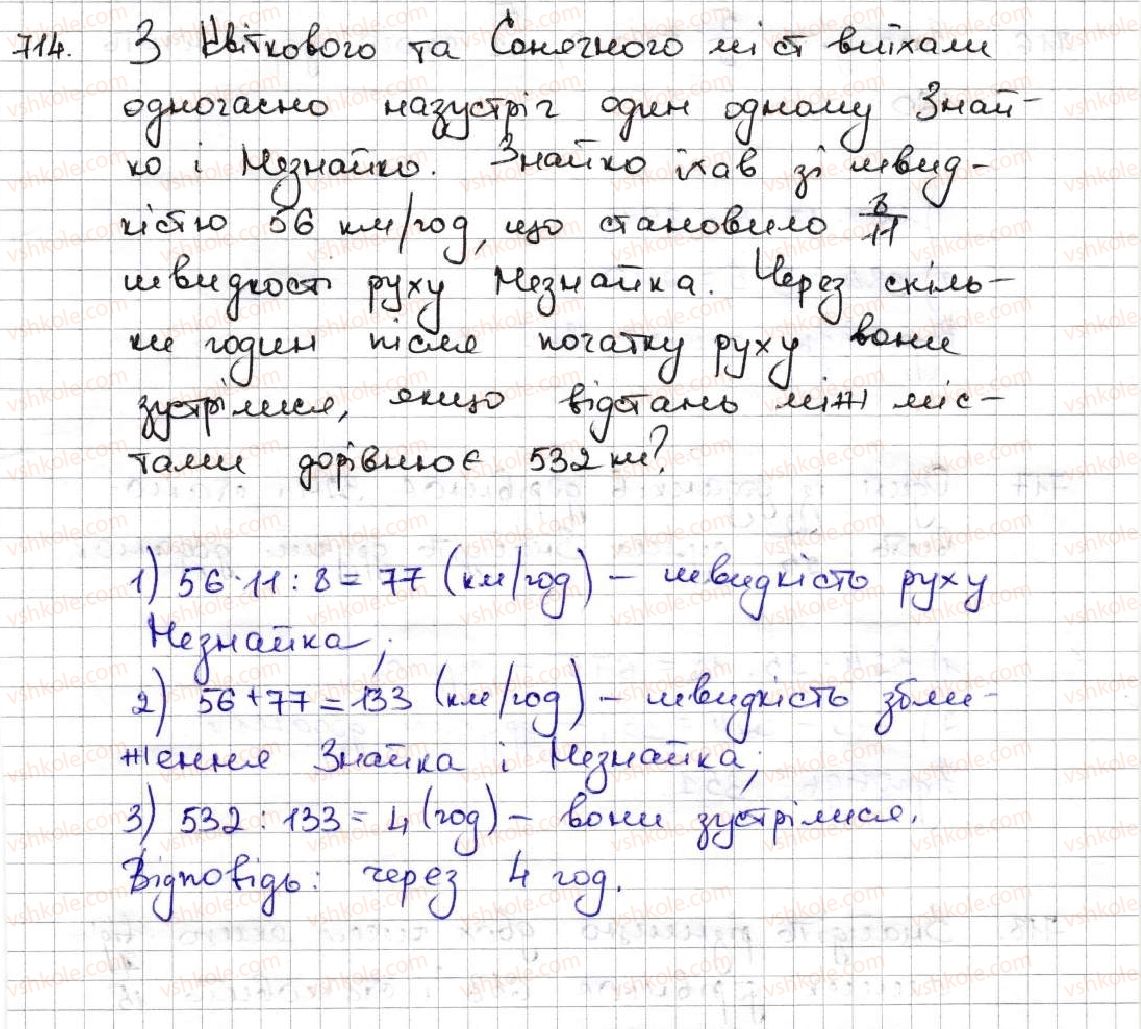 714. З Квіткового та Сонячного міст виїхали
одночасно назустріч один одному Знай-
ко і Незнайко. Знайко їхав зі швид-
кістю 56 км/год, що становило 8/11
швидкості руху Незнайка. Через скіль-
ки годин після початку руху вони
зустрілися, якщо відстань між міс-
тами дорівнює 532 км?
1) 56·11:8=77 (км/год) – швидкість руху
Незнайка;
2) 56+77=133 (км/год) – швидкість збли-
ження Знайка і Незнайка;
3) 532:133=4 (год) – вони зустрілися.
Відповідь: через 4 год.